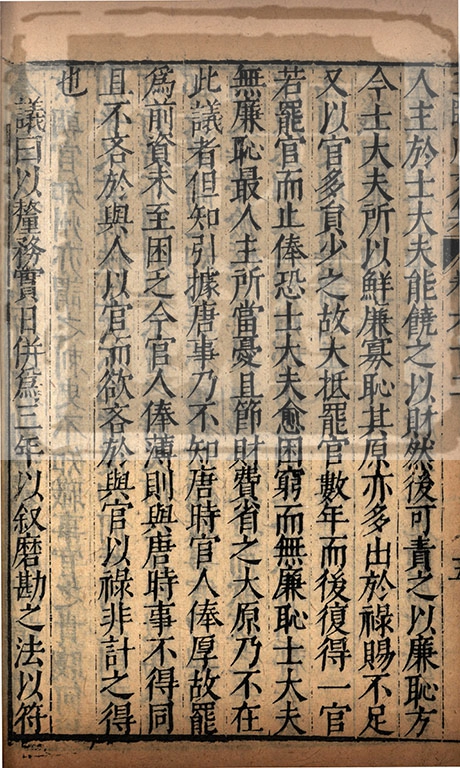 人主於士大夫能饒之以財然後可責之以廉恥方
今士大夫所以鮮廉寡恥其原亦多出於祿賜不足
又以官多員少之故大抵罷官數年而後復得一官
若罷官而止俸恐士大夫愈困窮而無廉恥士大夫
無廉恥最人主所當憂且節財費省之大原乃不在
此議者但知引據唐事乃不知唐時官人俸厚故罷
爲前資未至困乏今官人俸薄則與唐時事不得同
且不吝於與人以官而欲吝於與官以祿非計之得
也
議曰以釐務實日併爲三年以叙磨勘之法以符